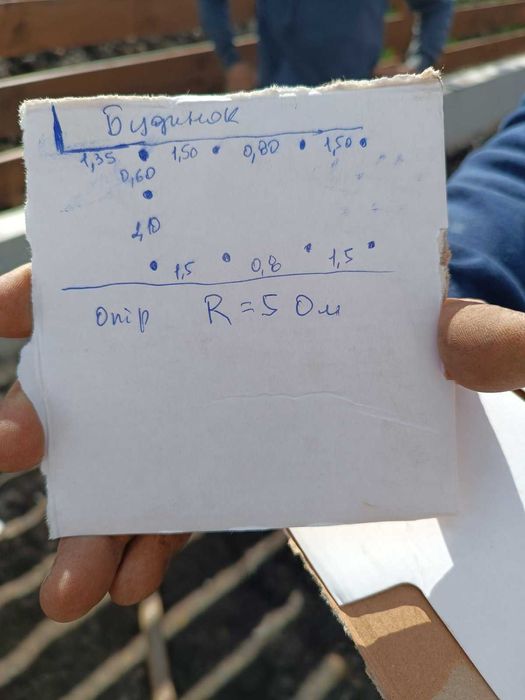 Будинок
1,35 1,50 0,80 1,50
0,60
1,10
1,5 0,8 1,5
Опір R = 5 Ом